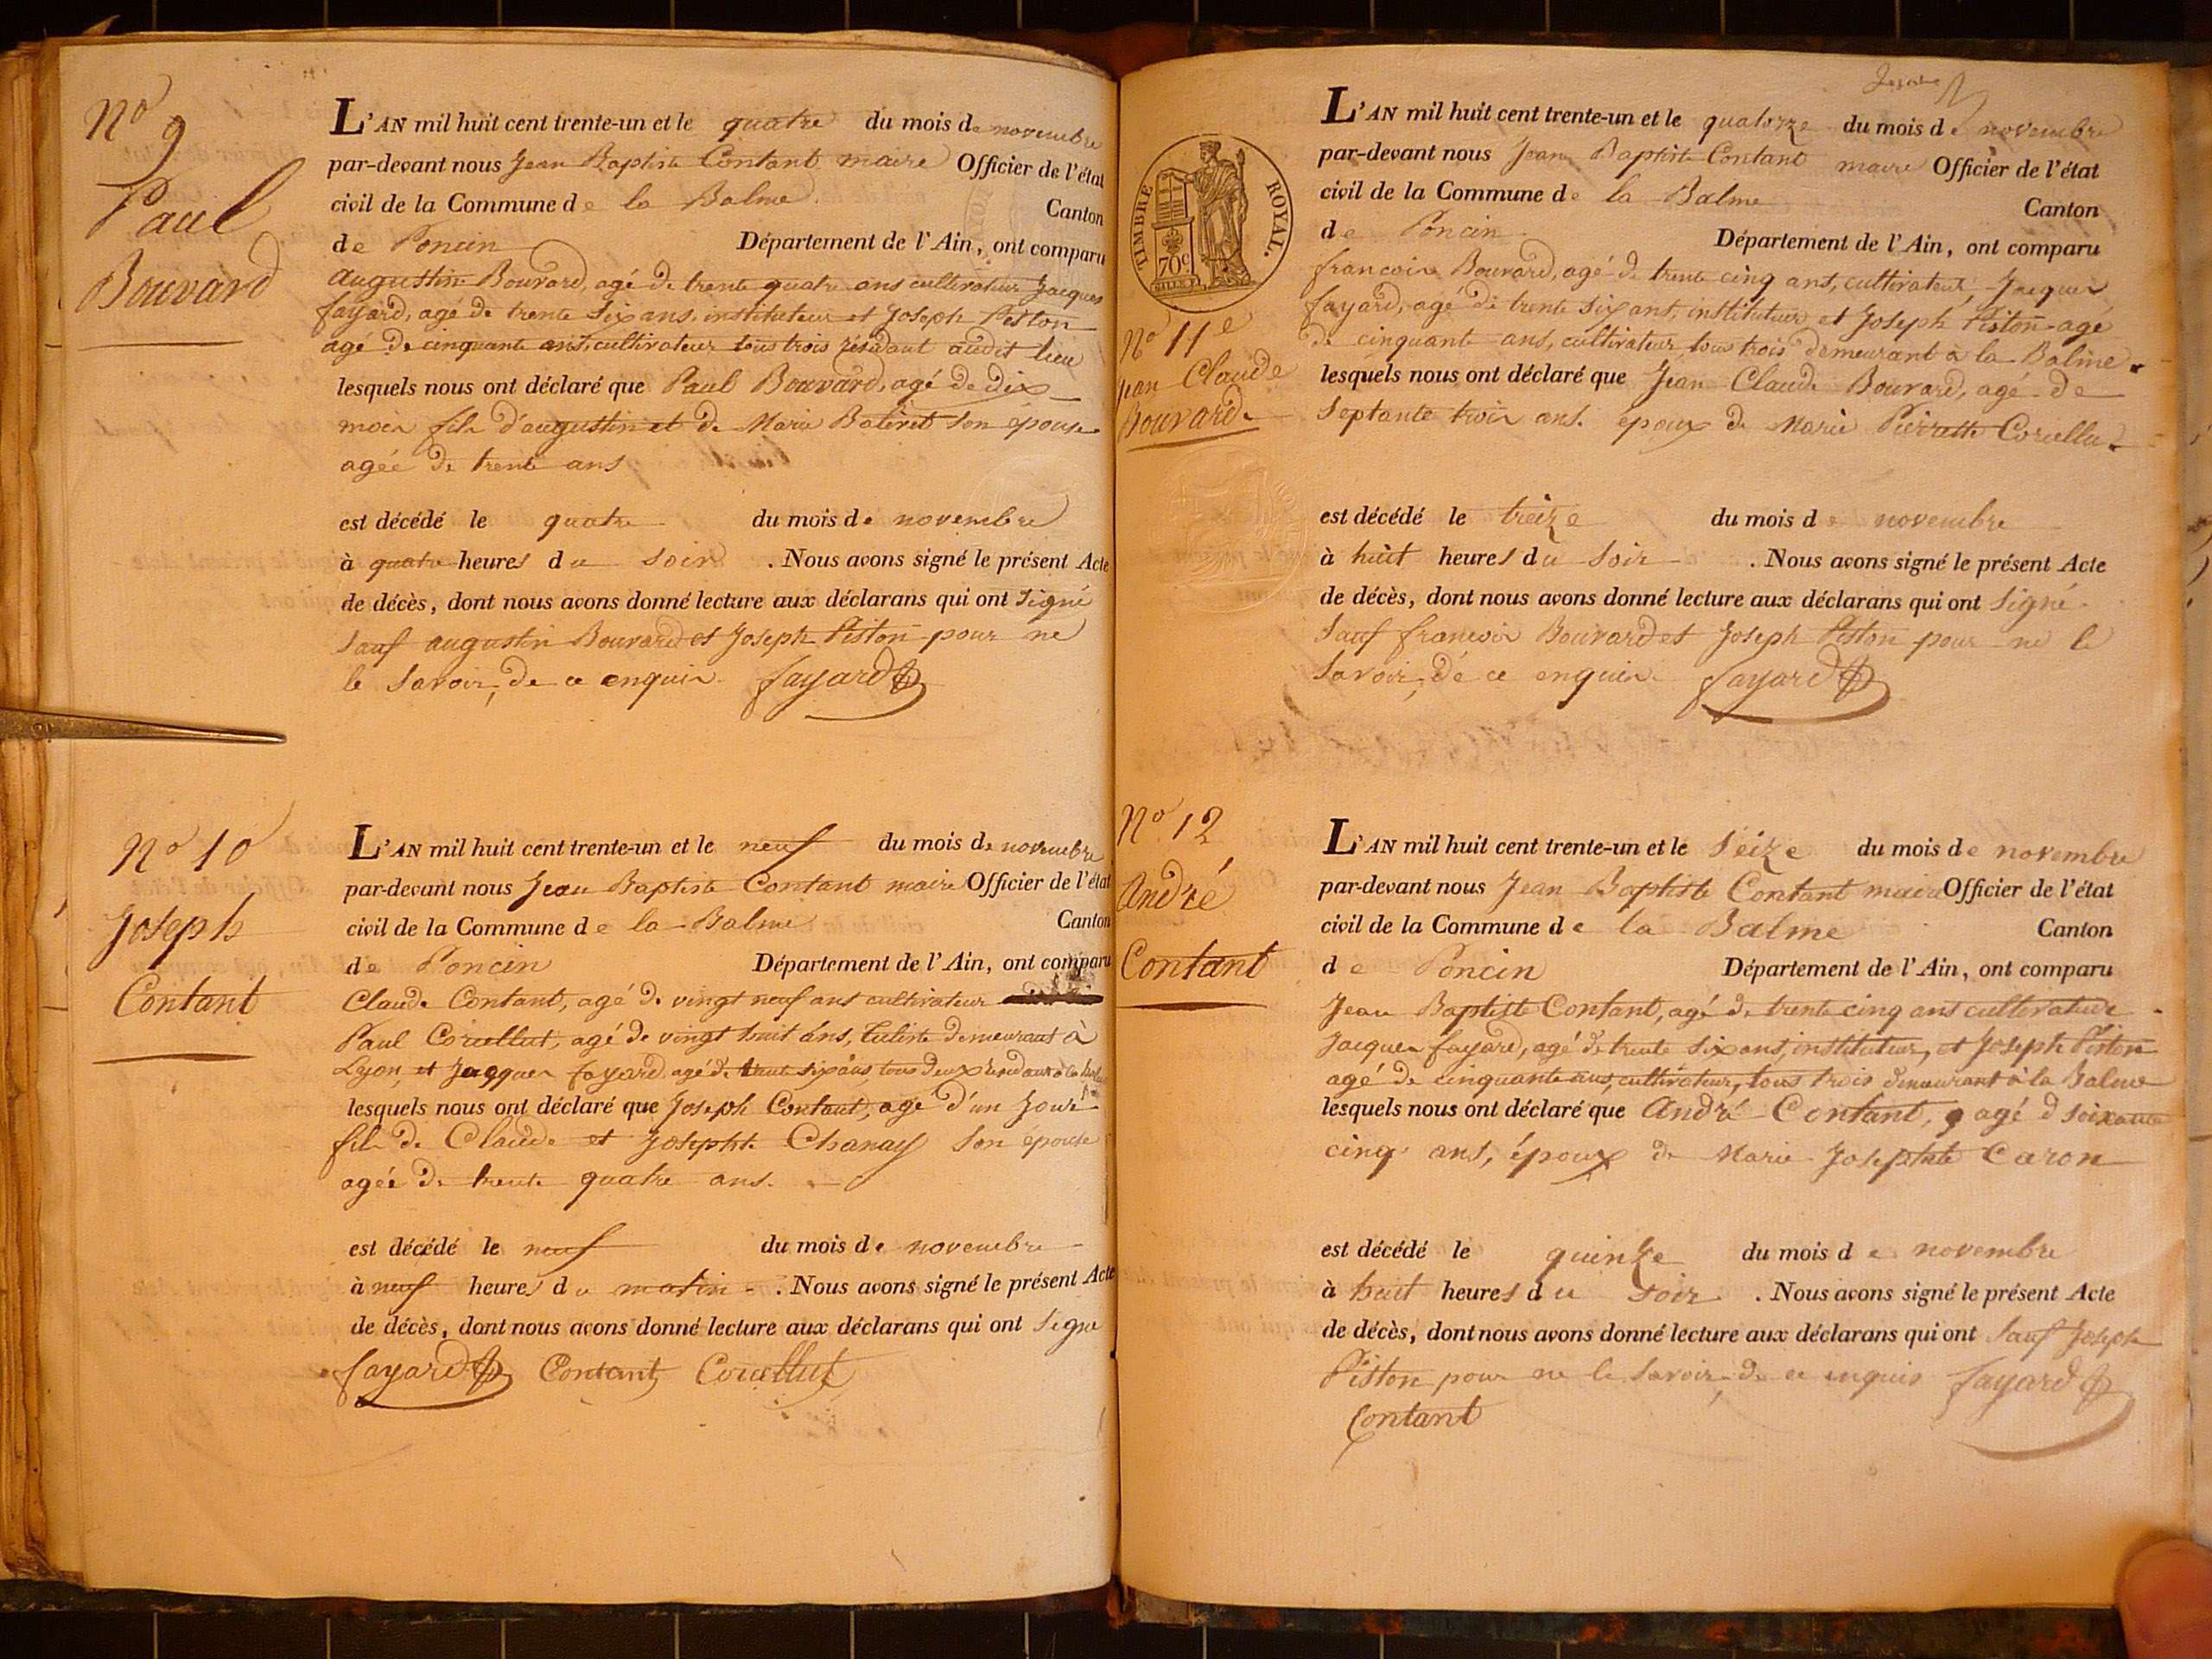 No 9
Paul
Bouvard
L'AN mil huit cent trente-un et le quatre du mois de novembre
par-devant nous Jean Baptiste Contant maire Officier de l'état
civil de la Commune de la Balme Canton
de Poncin Département de l'Ain, ont comparu
augustin Bouvard, agé de trente quatre ans cultivateur Jacques
fayard, agé de trente six ans, instituteur et Joseph Piston
agé de cinquante ans, cultivateur tous trois résidant audit lieu
lesquels nous ont déclaré que Paul Bouvard, agé de dix
mois fils d'augustin et de Marie son epouse
agée de trente ans
est décédé le quatre du mois de novembre
à quatre heures du soir . Nous avons signé le présent Acte
de décès, dont nous avons donné lecture aux déclarans qui ont signé
sauf augustin Bouvard et Joseph Piston pour ne
le savoir, de ce enquis. fayard
No 10
Joseph
Contant
L'AN mil huit cent trente-un et le neuf du mois de novembre
par-devant nous Jean Baptiste Contant maire Officier de l'état
civil de la Commune de la Balme Canton
de Poncin Département de l'Ain, ont comparu
Claude Contant, agé de vingt neuf ans cultivateur
Paul Corcellut, agé de vingt huit ans, tuliste demeurant à
Lyon, et Jacques fayard agé de trente six ans, tous deux résidant à la Balme
lesquels nous ont déclaré que Joseph Contant, agé d'un jour
fils de Claude et Josephte Chanay son épouse
agée de trente quatre ans.
est décédé le neuf du mois de novembre
à neuf heures du matin . Nous avons signé le présent Acte
de décès, dont nous avons donné lecture aux déclarans qui ont signé
fayard Contant Corcellut
TIMBRE ROYAL.
70c
No 11e
jean Claude
Bouvard
L'AN mil huit cent trente-un et le quatorze du mois de novembre
par-devant nous Jean Baptiste Contant maire Officier de l'état
civil de la Commune de la Balme Canton
de Poncin Département de l'Ain, ont comparu
francois Bouvard, agé de trente cinq ans, cultivateur, Jacques
fayard, agé de trente six ans, instituteur et Joseph Piston agé
de cinquante ans, cultivateur, tous trois demeurant à la Balme.
lesquels nous ont déclaré que Jean Claude Bouvard, agé de
septante trois ans. époux de Marie Pierrette Corcellu.
est décédé le treize du mois de novembre
à huit heures du soir . Nous avons signé le présent Acte
de décès, dont nous avons donné lecture aux déclarans qui ont signé.
sauf francois Bouvard et Joseph Piston pour ne le
savoir, de ce enquis. fayard
No 12
André
Contant
L'AN mil huit cent trente-un et le seize du mois de novembre
par-devant nous Jean Baptiste Contant maire Officier de l'état
civil de la Commune de la Balme Canton
de Poncin Département de l'Ain, ont comparu
Jean Baptiste Contant, agé de trente cinq ans cultivateur
Jacques fayard, agé de trente six ans, instituteur, et Joseph Piston
agé de cinquante ans, cultivateur, tous trois demeurant à la Balme
lesquels nous ont déclaré que André Contant, agé d soixante
cinq ans, époux de Marie Josephte Caron
est décédé le quinze du mois de novembre
à huit heures du soir . Nous avons signé le présent Acte
de décès, dont nous avons donné lecture aux déclarans qui ont sauf Joseph
Piston pour ne le savoir, de ce enquis fayard
Contant